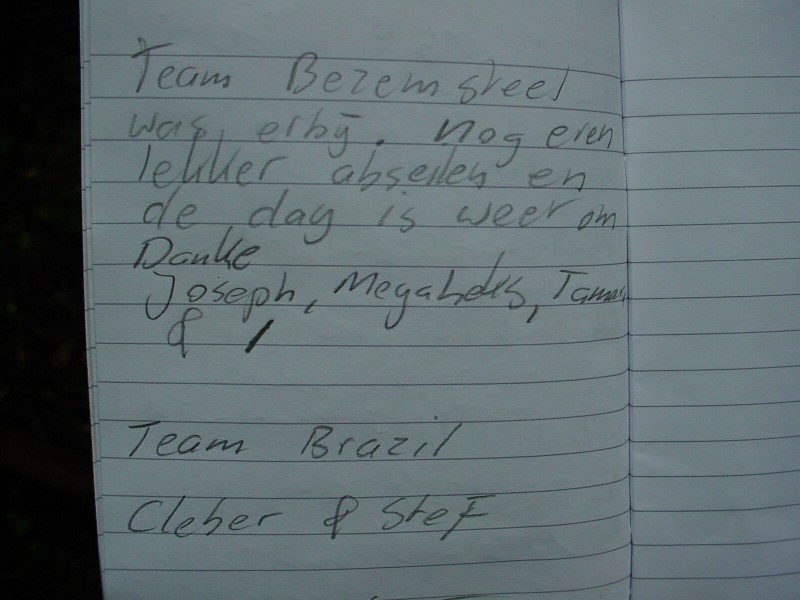 Team Bezemsteel
was erbij. Nog even
lekker abseilen en
de dag is weer om
Danke
Joseph, Megaheks,
& /
Team Brazil
Cleber & Stef